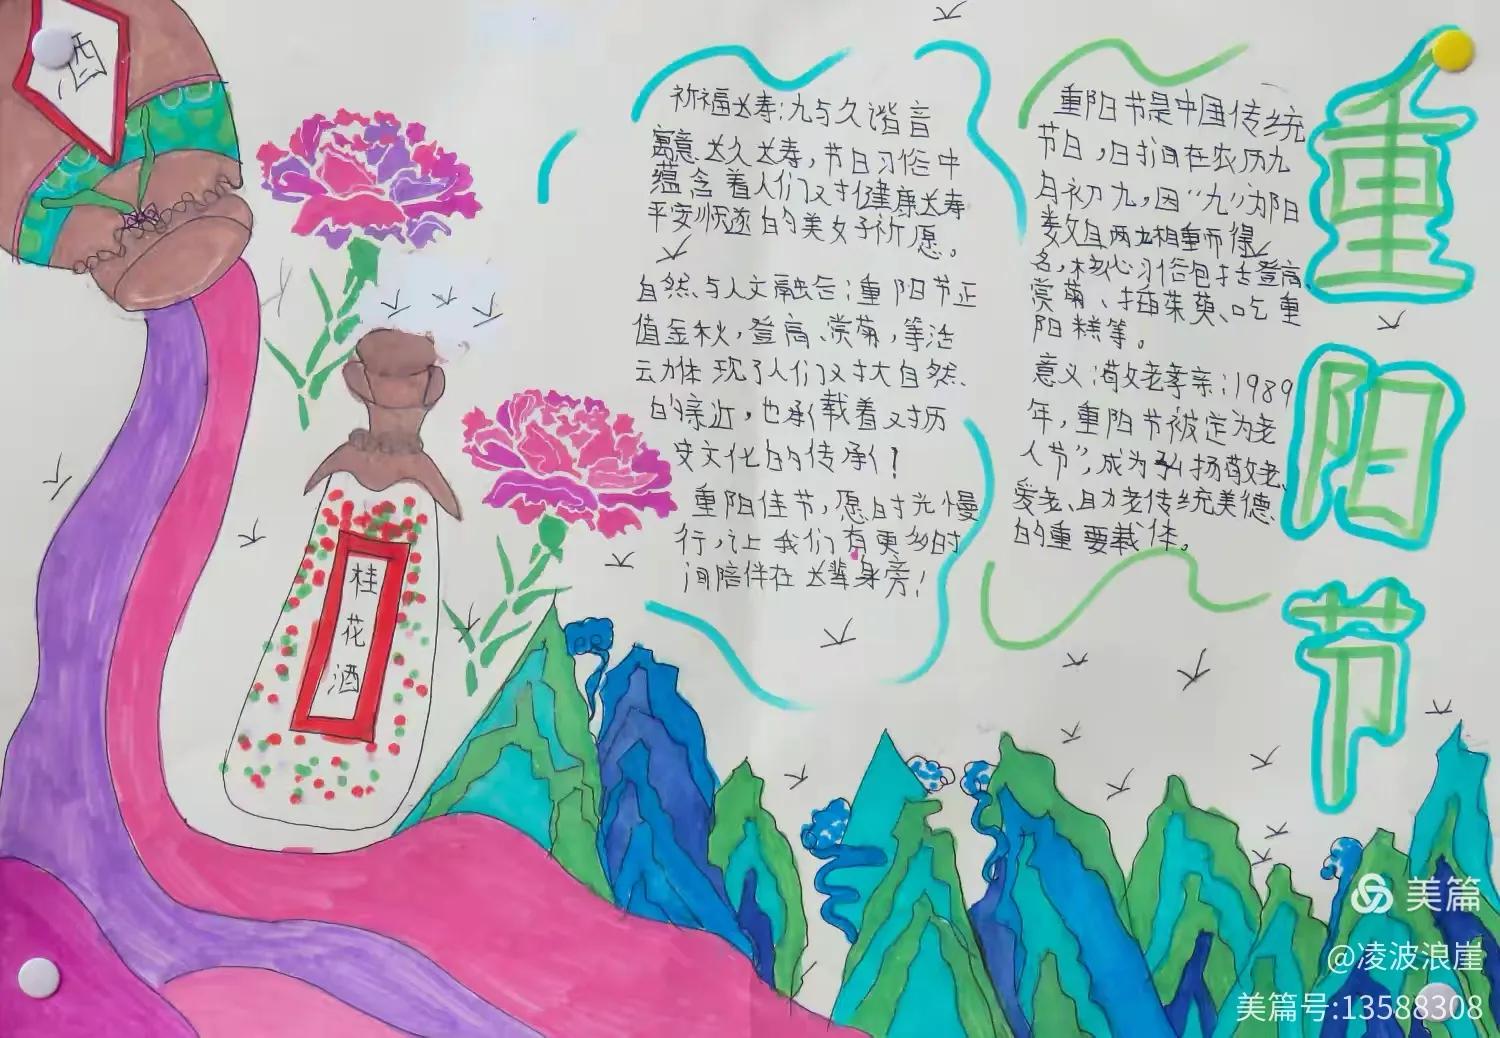 酒
重阳节
重阳节是中国传统
节日，日期在农历九
月初九，因“九”为阳
数且两九相重而得
名，核心习俗包括登高、
赏菊、插茱萸、吃重
阳糕等。
意义：敬老孝亲：1989
年，重阳节被定为老
人节”，成为弘扬敬老、
爱老、助老传统美德
的重要载体。
祈福长寿：九与久谐音
寓意长久长寿，节日习俗中
蕴含着人们对健康长寿
平安顺遂的美好祈愿。
自然与人文融合：重阳节正
值金秋，登高、赏菊，等活
动体现了人们对大自然、
的亲近，也承载着对历
史文化的传承！
重阳佳节，愿时光慢
行，让我们有更多时
间陪伴在长辈身旁！
桂
花
酒
美篇
@凌波浪崖
美篇号:13588308